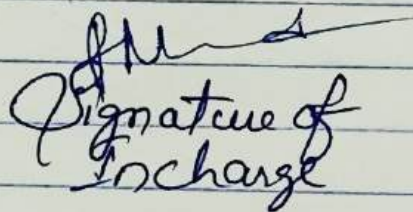 Signature of
Incharge